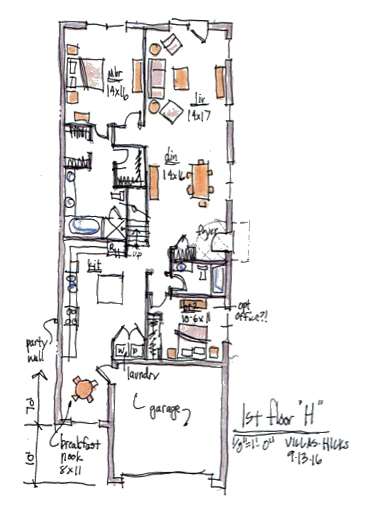 Mbr
14x16
liv
14x17
din
14x16
foyer
up
kit
br2
10-6x11
opt
office?!
party
wall
W D
laundry
garage
breakfast
nook
8x11
1st floor "H"
1/8"=1'-0" VILLAS-HICKS
9-13-16